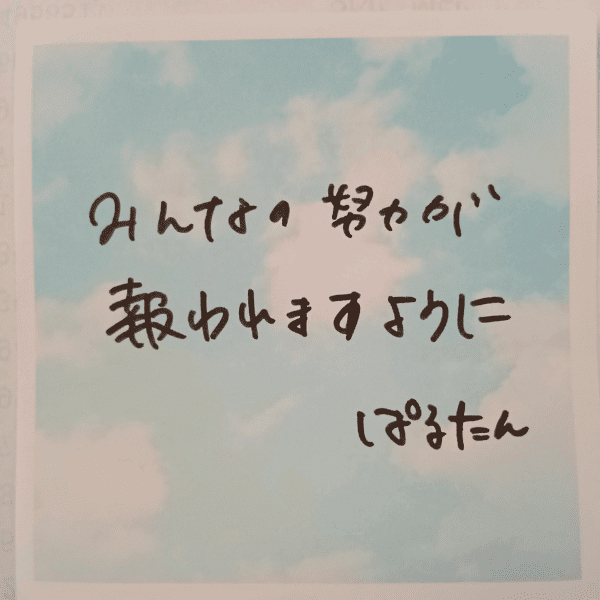 みんなの努力が
報われますように
ぱるたん